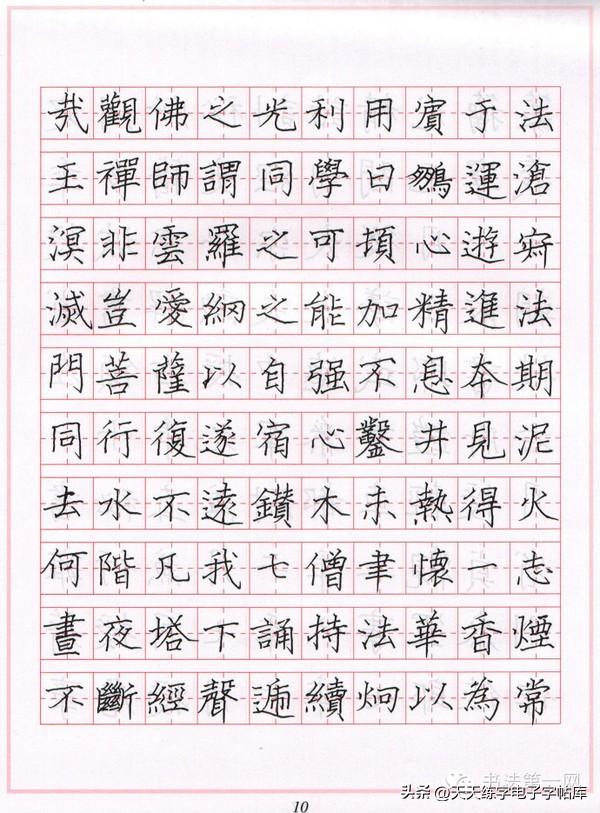 哉觀佛之光利用賓于法
王禪師謂同學曰鵬運滄
溟非雲羅之可頓心遊寂
滅豈愛網之能加精進法
門菩薩以自强不息本期
同行復遂宿心鑿井見泥
去水不遠鑽木未熱得火
何階凡我七僧聿懷一志
晝夜塔下誦持法華香煙
不斷經聲遞續炯以為常
书法第一网
头条 @天天练字电子字帖库
10